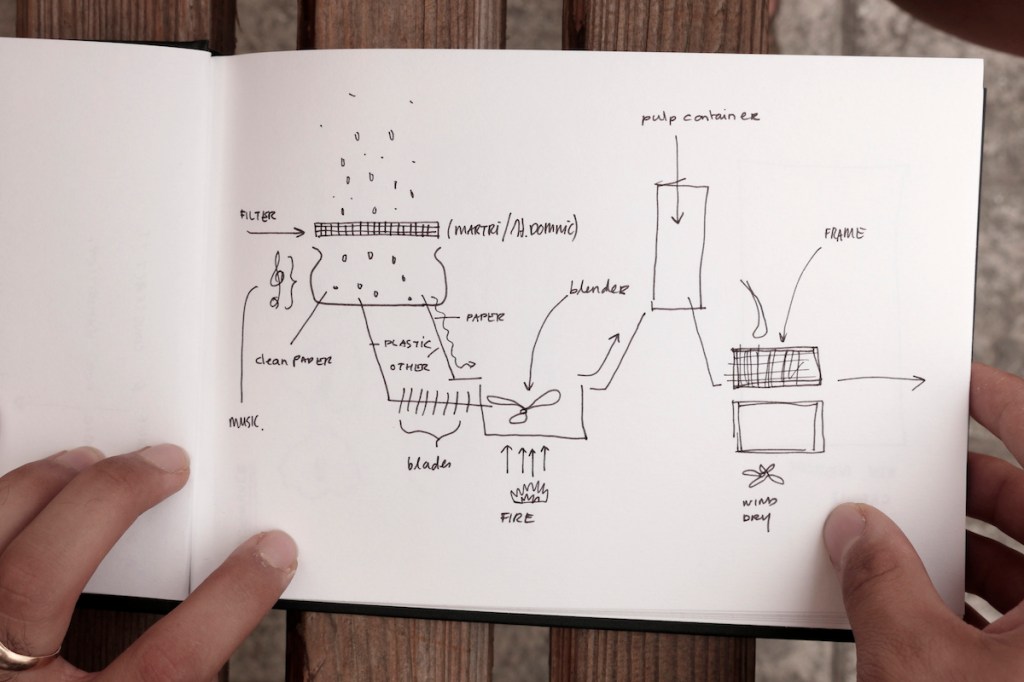 pulp container
FILTER
(MARTRI/
FRAME
blender
PAPER
PLASTIC
OTHER
clean PAPER
MUSIC.
blades
FIRE
WIND
DRY